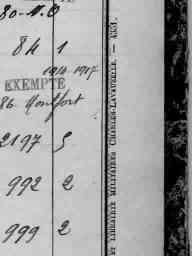 80-1.0
84 1
1914-1917
EXEMPTE
86. Montfort
2197 5
992 2
999 2
ET LIBRAIRIE MILITAIRES CHARLES-LAVAUZELLE. — 4351.